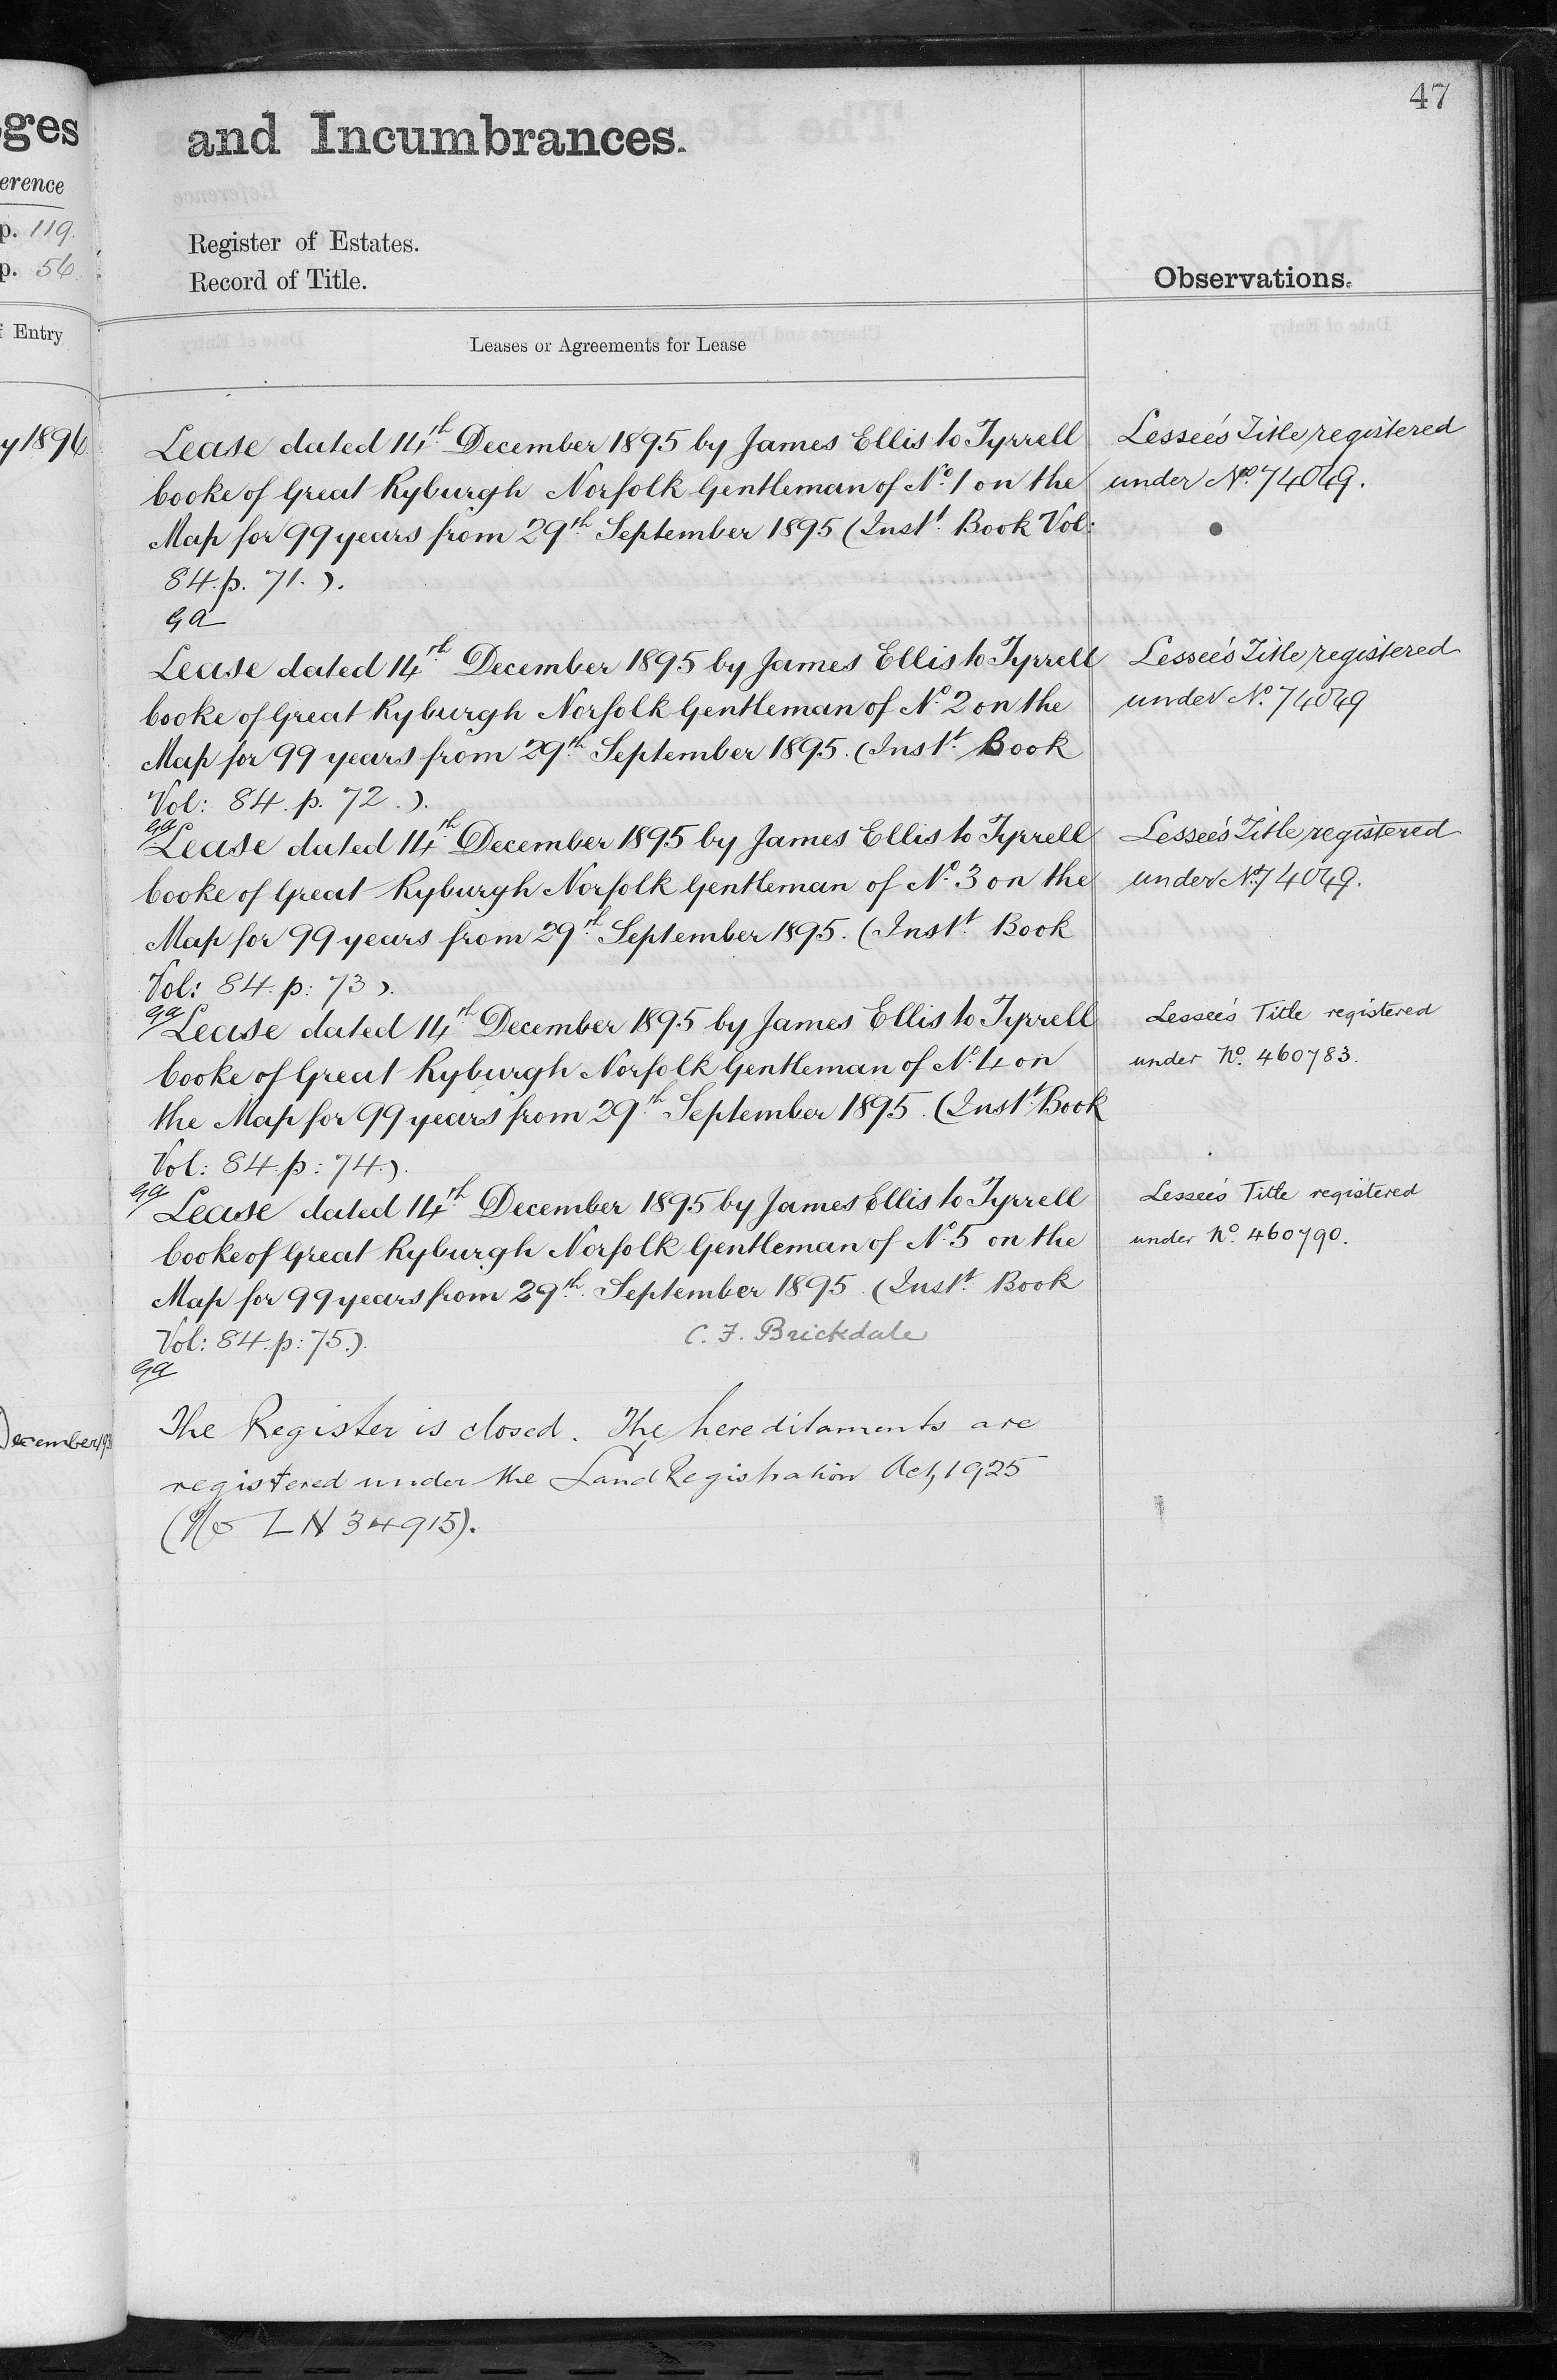 47
ges
and Incumbrances.
erence
p. 119.
Register of Estates.
p. 56
Record of Title.
Observations.
Entry
Leases or Agreements for Lease
y 1896
Lease dated 14th December 1895 by James Ellis to Tyrrell
Cooke of Great Ryburgh Norfolk Gentleman of No. 1 on the
Map for 99 years from 29th September 1895 (Instt. Book Vol:
84. p. 71.).
Lessee's Title registered
under No. 74049.
GA
Lease dated 14th December 1895 by James Ellis to Tyrrell
Cooke of Great Ryburgh Norfolk Gentleman of No. 2 on the
Map for 99 years from 29th September 1895. (Instt. Book
Vol: 84. p. 72.).
Lessee's Title registered
under No. 74049
GA
Lease dated 14th December 1895 by James Ellis to Tyrrell
Cooke of Great Ryburgh Norfolk Gentleman of No. 3 on the
Map for 99 years from 29th September 1895. (Instt. Book
Vol: 84. p: 73).
Lessee's Title registered
under No. 74049.
GA
Lease dated 14th December 1895 by James Ellis to Tyrrell
Cooke of Great Ryburgh Norfolk Gentleman of No. 4 on
the Map for 99 years from 29th September 1895. (Instt. Book
Vol: 84. p: 74.).
Lessee's Title registered
under No. 460783.
GA
Lease dated 14th December 1895 by James Ellis to Tyrrell
Cooke of Great Ryburgh Norfolk Gentleman of No. 5 on the
Map for 99 years from 29th September 1895. (Instt. Book
Vol: 84. p: 75.).
C. F. Brickdale
Lessee's Title registered
under No. 460790.
GA
December
The Register is closed. The hereditaments are
registered under the Land Registration Act, 1925
(No LN 34915).